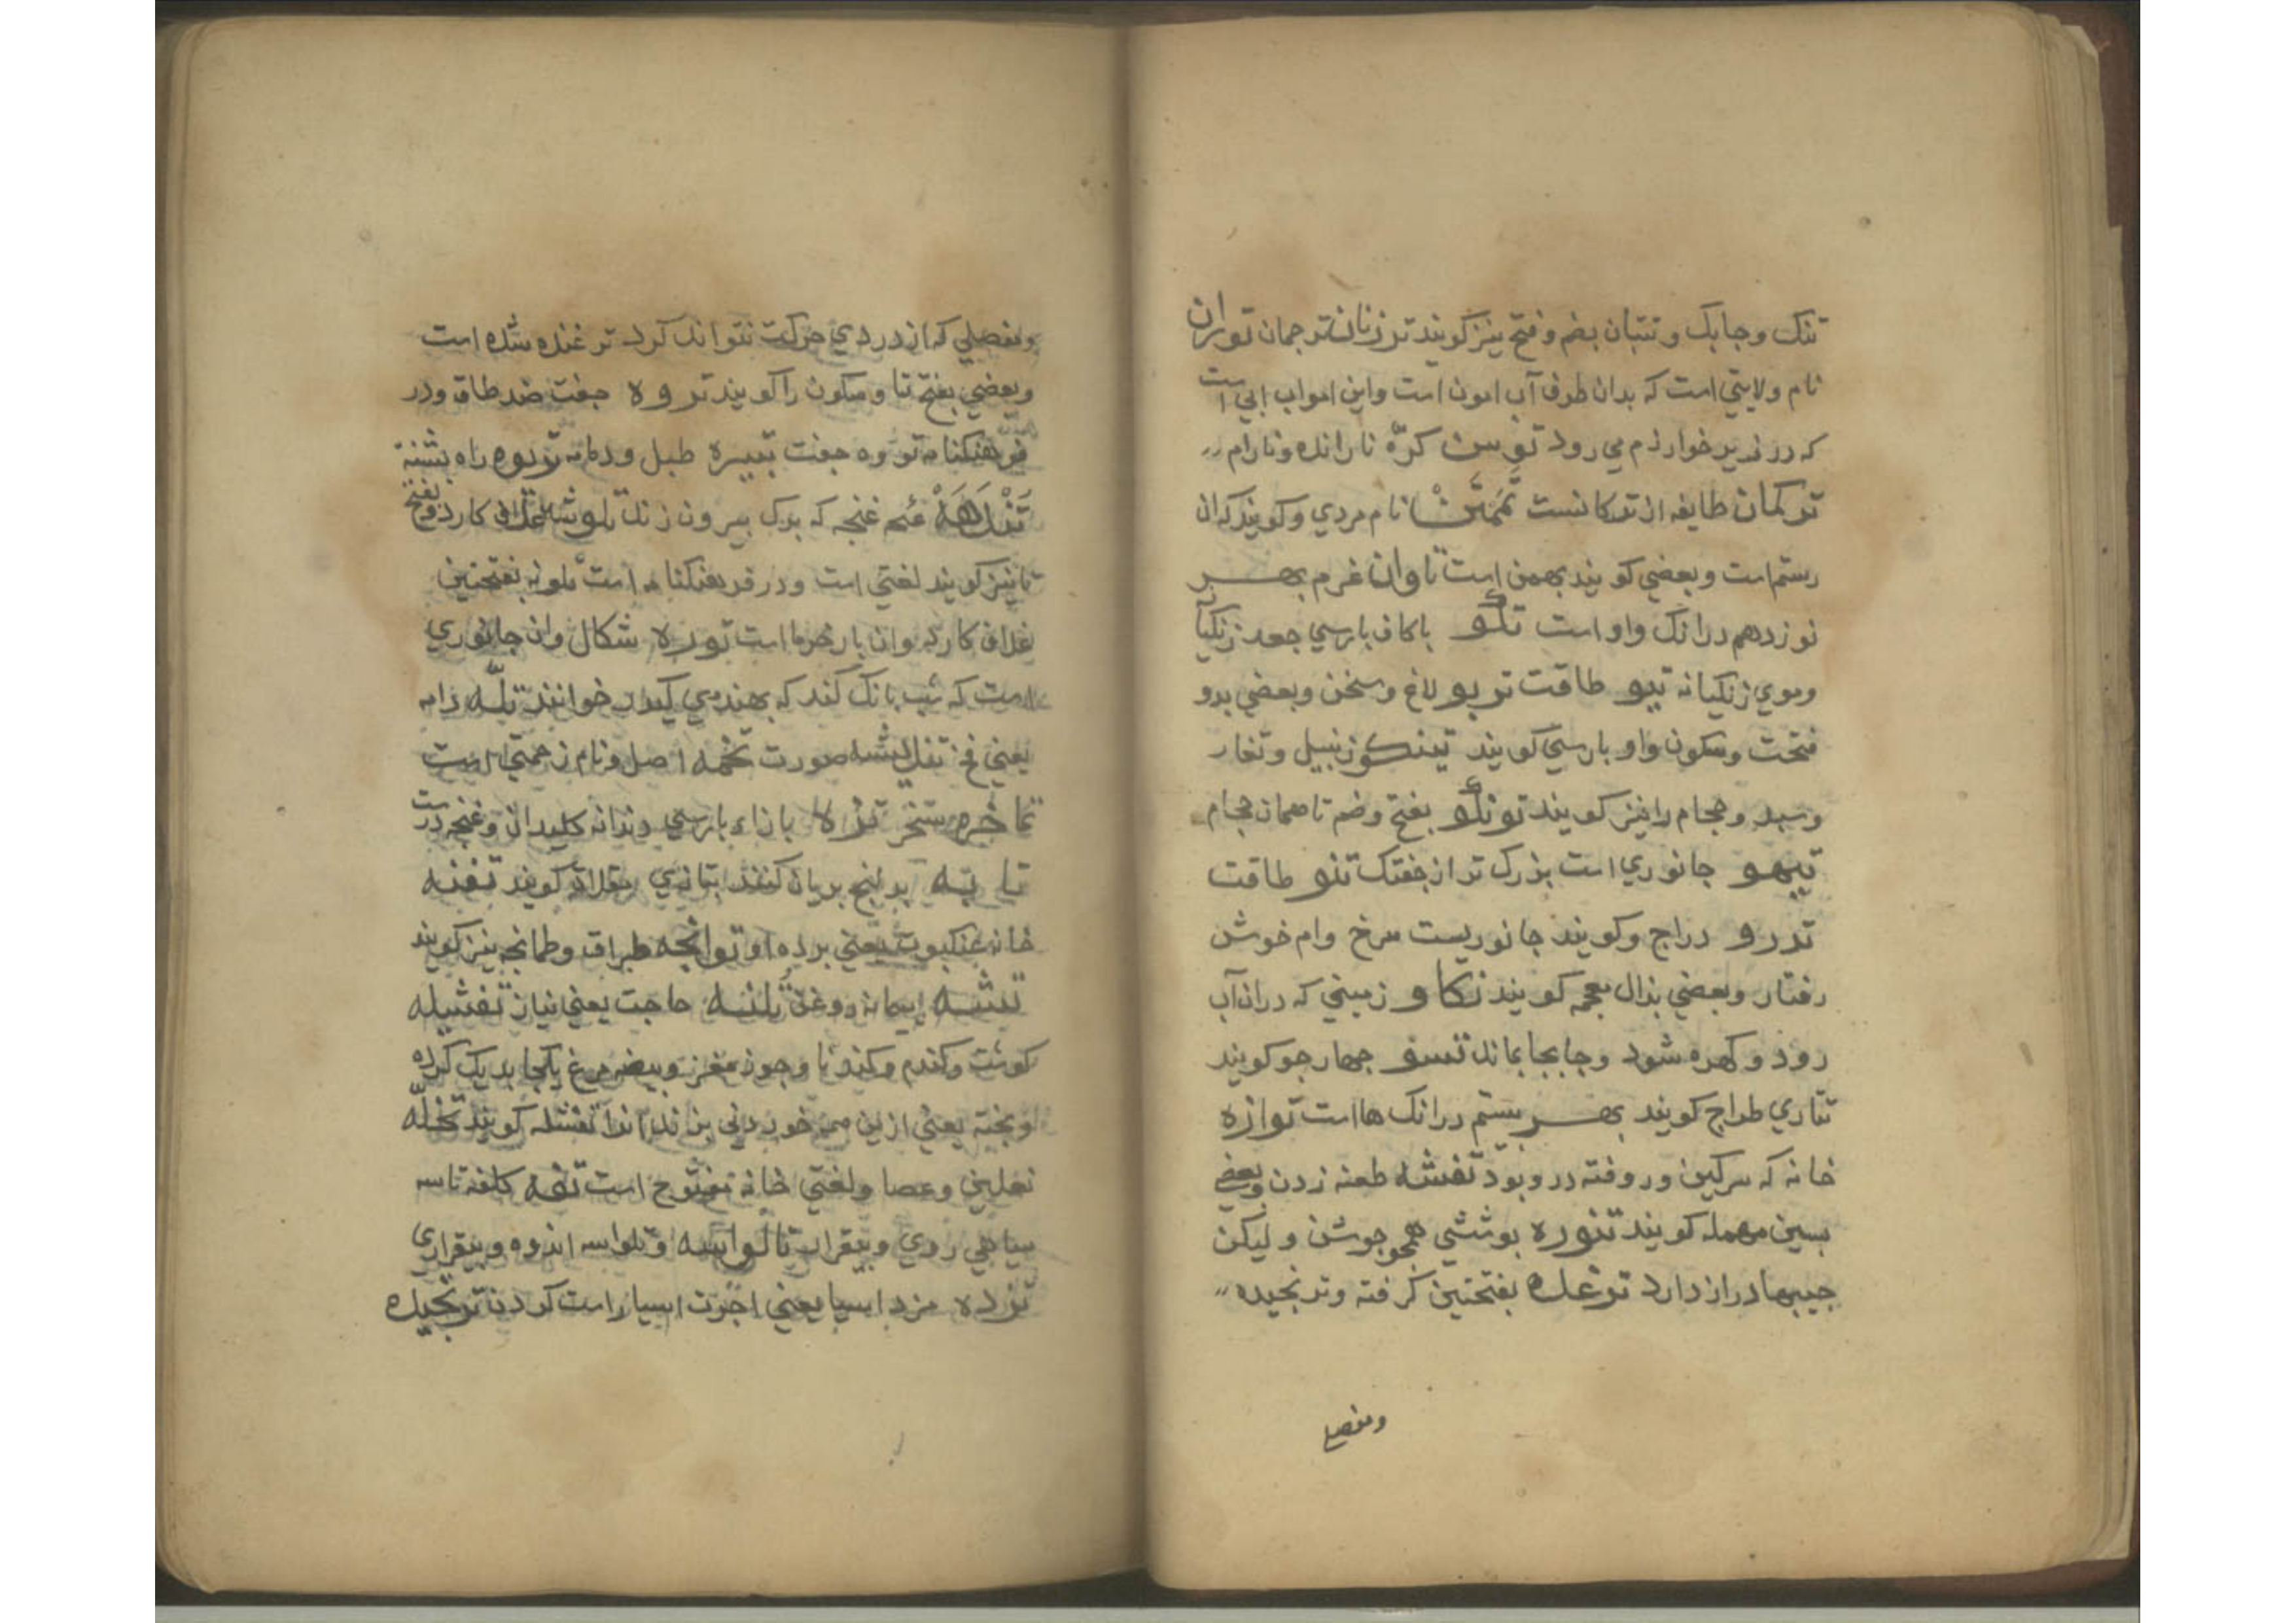 تنک وجابک و تنبان بضم وفتح نیز کویند ترزنان ترجمان توران
نام ولایتی است که بدان طرف آب امون است واین امواب ابی است
که در زیر خوارزم می رود توسن کرّه نا رانده ونا رام
ترکمان طایفه از ترکانست تهمتن نام مردی و کویند که ان
رستم است وبعضی کویند بهمن است تاوان غرم بهر
نوزدهم درانک واو است تکو باکاف بارسی جعد زنکیا
وموی زنکیانه تیو طاقت تربو لاغ وسخن وبعضی بدو
فتحت وسکون واو بارسی کویند تینکو زنبیل وتغار
وسبد وحجام را نیز کویند تونکو بفتح وضم تا همان حجام
تیهو جانوری است بزرک تر از جفتک تنو طاقت
تدرو دراج وکویند جانوریست سرخ وام خوش
رفتار وبعضی بذال معجمه کویند تکاو زمینی که دران آب
رود و کهره شود وجابجا بماند تسو جهار جو کویند
تتاری طراج کویند بهر بیستم درانک هااست توازه
خانه که سرکین وروفته درو بود تفشه طعنه زدن وبعضی
بسین مهمله کویند تنوره بوششی همجو جوشن و لیکن
جیبها دراز دارد ترغده بفتحتین کرفته وترنجیده
ومفصلی
ومفصلی که از دردی حرکت نتواند کرد ترغنده شده است
وبعضی بفتح تا وسکون را کویند تروه جفت ضد طاق ودر
فرهنکنامه تووه جفت تبیره طبل ودمامه توبوه راه بشته
تندهه غنجه که برک بیرون زند غلاف کارد وبفتح
تا نیز کویند لغتی است ودر فرهنکنامه است تلونه بفتحتین
غلاف کارد وان بار خرما است توره شکال وان جانوری
است که شب بانک کند که بهندوی کیدر خوانند تله دام
یعنی فخ صورت تخمه اصل ونام زحمتی است
تماخره سخر تزه بازاء بارسی دندانه کلیدان وغنجه درست
تابه برنج بریان کنند بتازی مقلاة کویند تفنه
خانه عنکبوت یعنی برده او توانجه طراق وطمانجه نیز کویند
بیمانه روغن تلنه حاجت یعنی نیاز تفشیله
کوشت وکندم وکندنا وجوز مغز وبیضه مرغ یکجا بدیک کرده
وبخته یعنی ازین خوردنی بزند انرا تفشله کویند تخله
نعلین وعصا ولغتی خانه مفتوح است تفه کلفه تاسه
سیاهی روی وبیقرار تالواسه وتلواسه اندوه وبیقراری
تزده مزد اسیا یعنی اجرت اسیا راست کردن ترنجیده